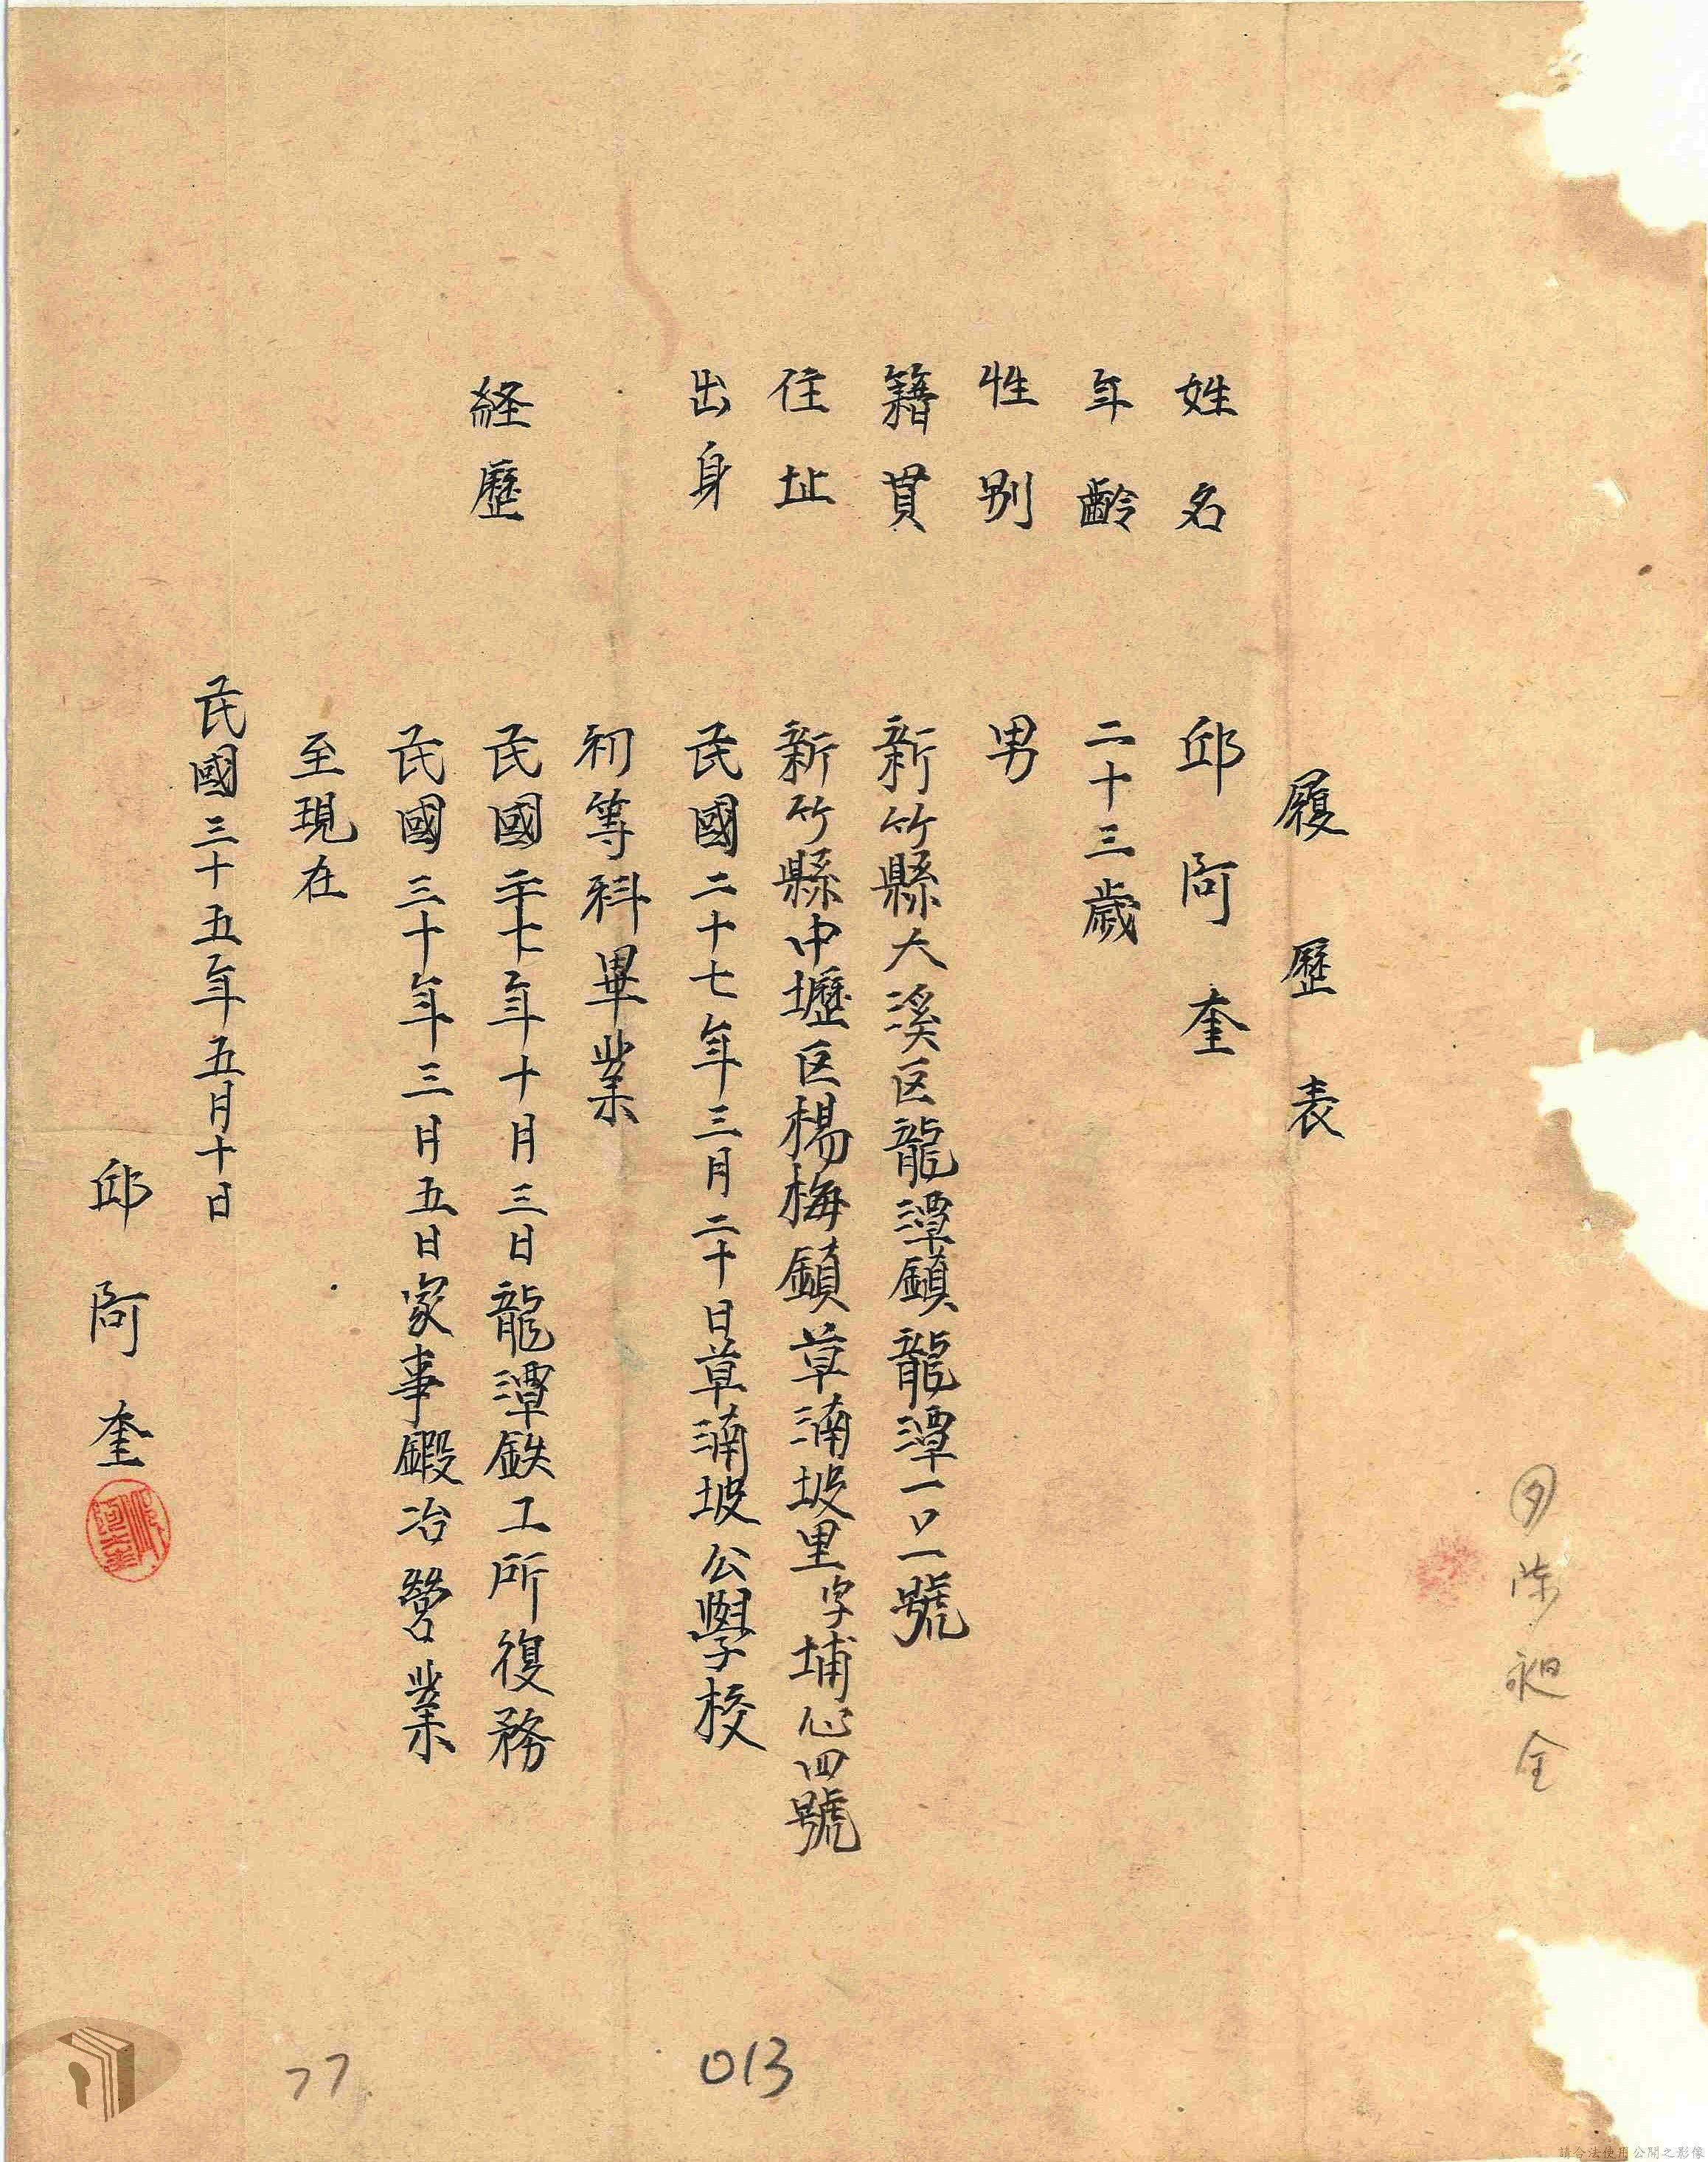 履歷表
姓名 邱阿奎
年齡 二十三歲
性別 男
籍貫 新竹縣大溪区龍潭鎮龍潭一〇一號
住址 新竹縣中壢区楊梅鎮草湳坡里字埔心四號
出身 民國二十七年三月二十日草湳坡公學校
初等科畢業
経歷 民國二十七年十月三日龍潭鉄工所復務
民國三十年三月五日家事鍛冶營業
至現在
民國三十五年五月十日
邱阿奎
013
77
請合法使用公開之影像